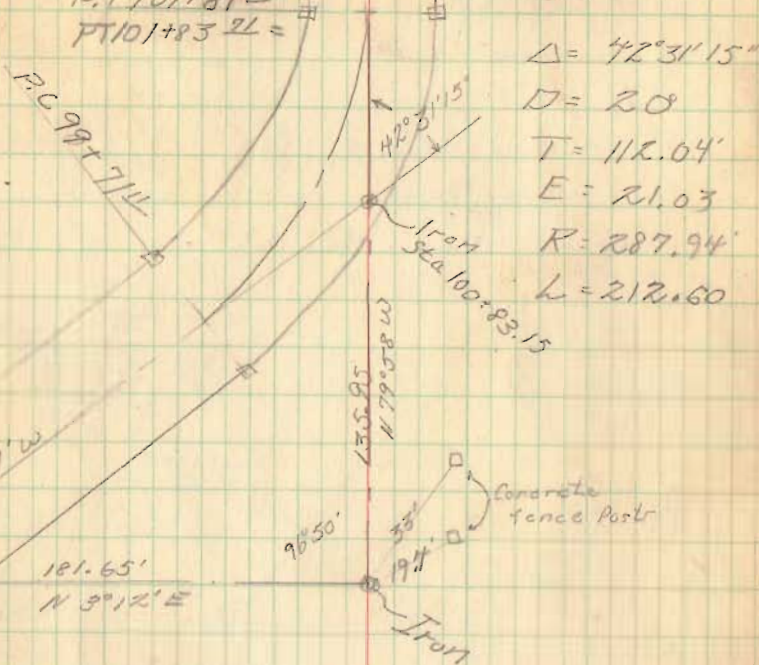 PT 101+83 71 =
P.C 99+71 11
Δ = 42°31'15"
D = 20
T = 112.04'
E = 21.03
R = 287.94'
L = 212.60
42°31'15"
Iron
Sta 100+83.15
135.95
N 79°58 W
' W
96°50'
33'
19.4'
Concrete
fence Posts
181.65'
N 3°12' E
Iron